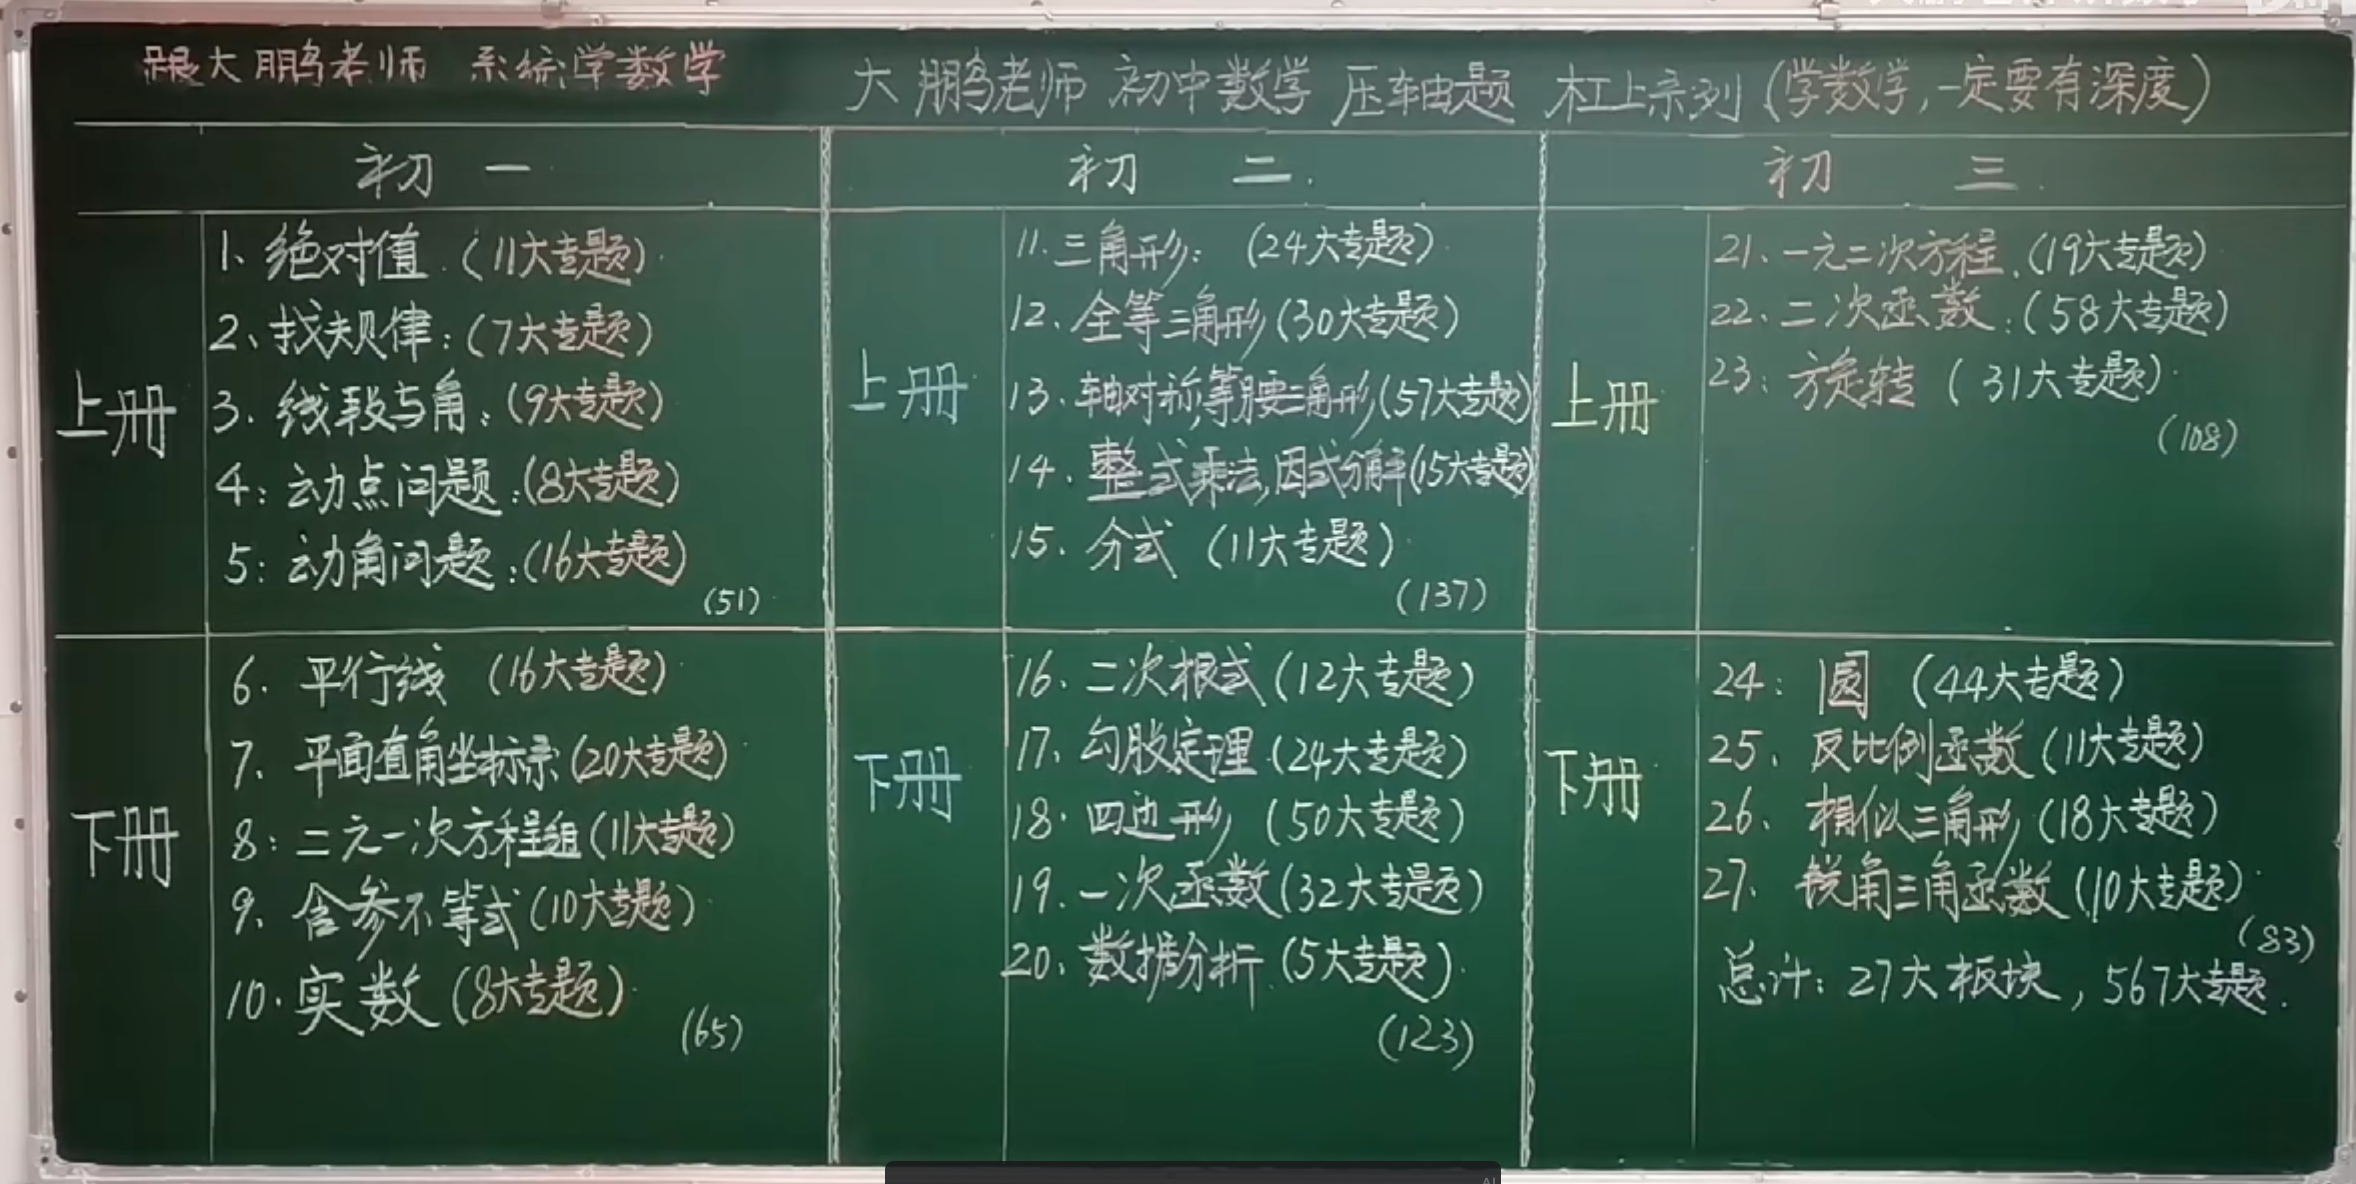 跟大鹏老师 系统学数学
大鹏老师 初中数学 压轴题 杠上系列 (学数学,一定要有深度)
初 一
上册
1、绝对值.(11大专题)
2、找规律:(7大专题)
3.线段与角:(9大专题)
4:动点问题:(8大专题)
5:动角问题:(16大专题)
(51)
下册
6.平行线 (16大专题)
7、平面直角坐标系(20大专题)
8:二元一次方程组(11大专题)
9、含参不等式(10大专题)
10.实数(8大专题)
(65)
初 二
上册
11.三角形:(24大专题)
12、全等三角形(30大专题)
13、轴对称,等腰三角形(57大专题)
14、整式乘法,因式分解(15大专题)
15、分式 (11大专题)
(137)
下册
16、二次根式(12大专题)
17、勾股定理(24大专题)
18.四边形 (50大专题)
19.一次函数(32大专题)
20、数据分析(5大专题)
(123)
初 三
上册
21、一元二次方程.(19大专题)
22、二次函数:(58大专题)
23:旋转 (31大专题)
(108)
下册
24:圆 (44大专题)
25、反比例函数(11大专题)
26、相似三角形(18大专题)
27、锐角三角函数(10大专题)
(83)
总计:27大板块,567大专题.